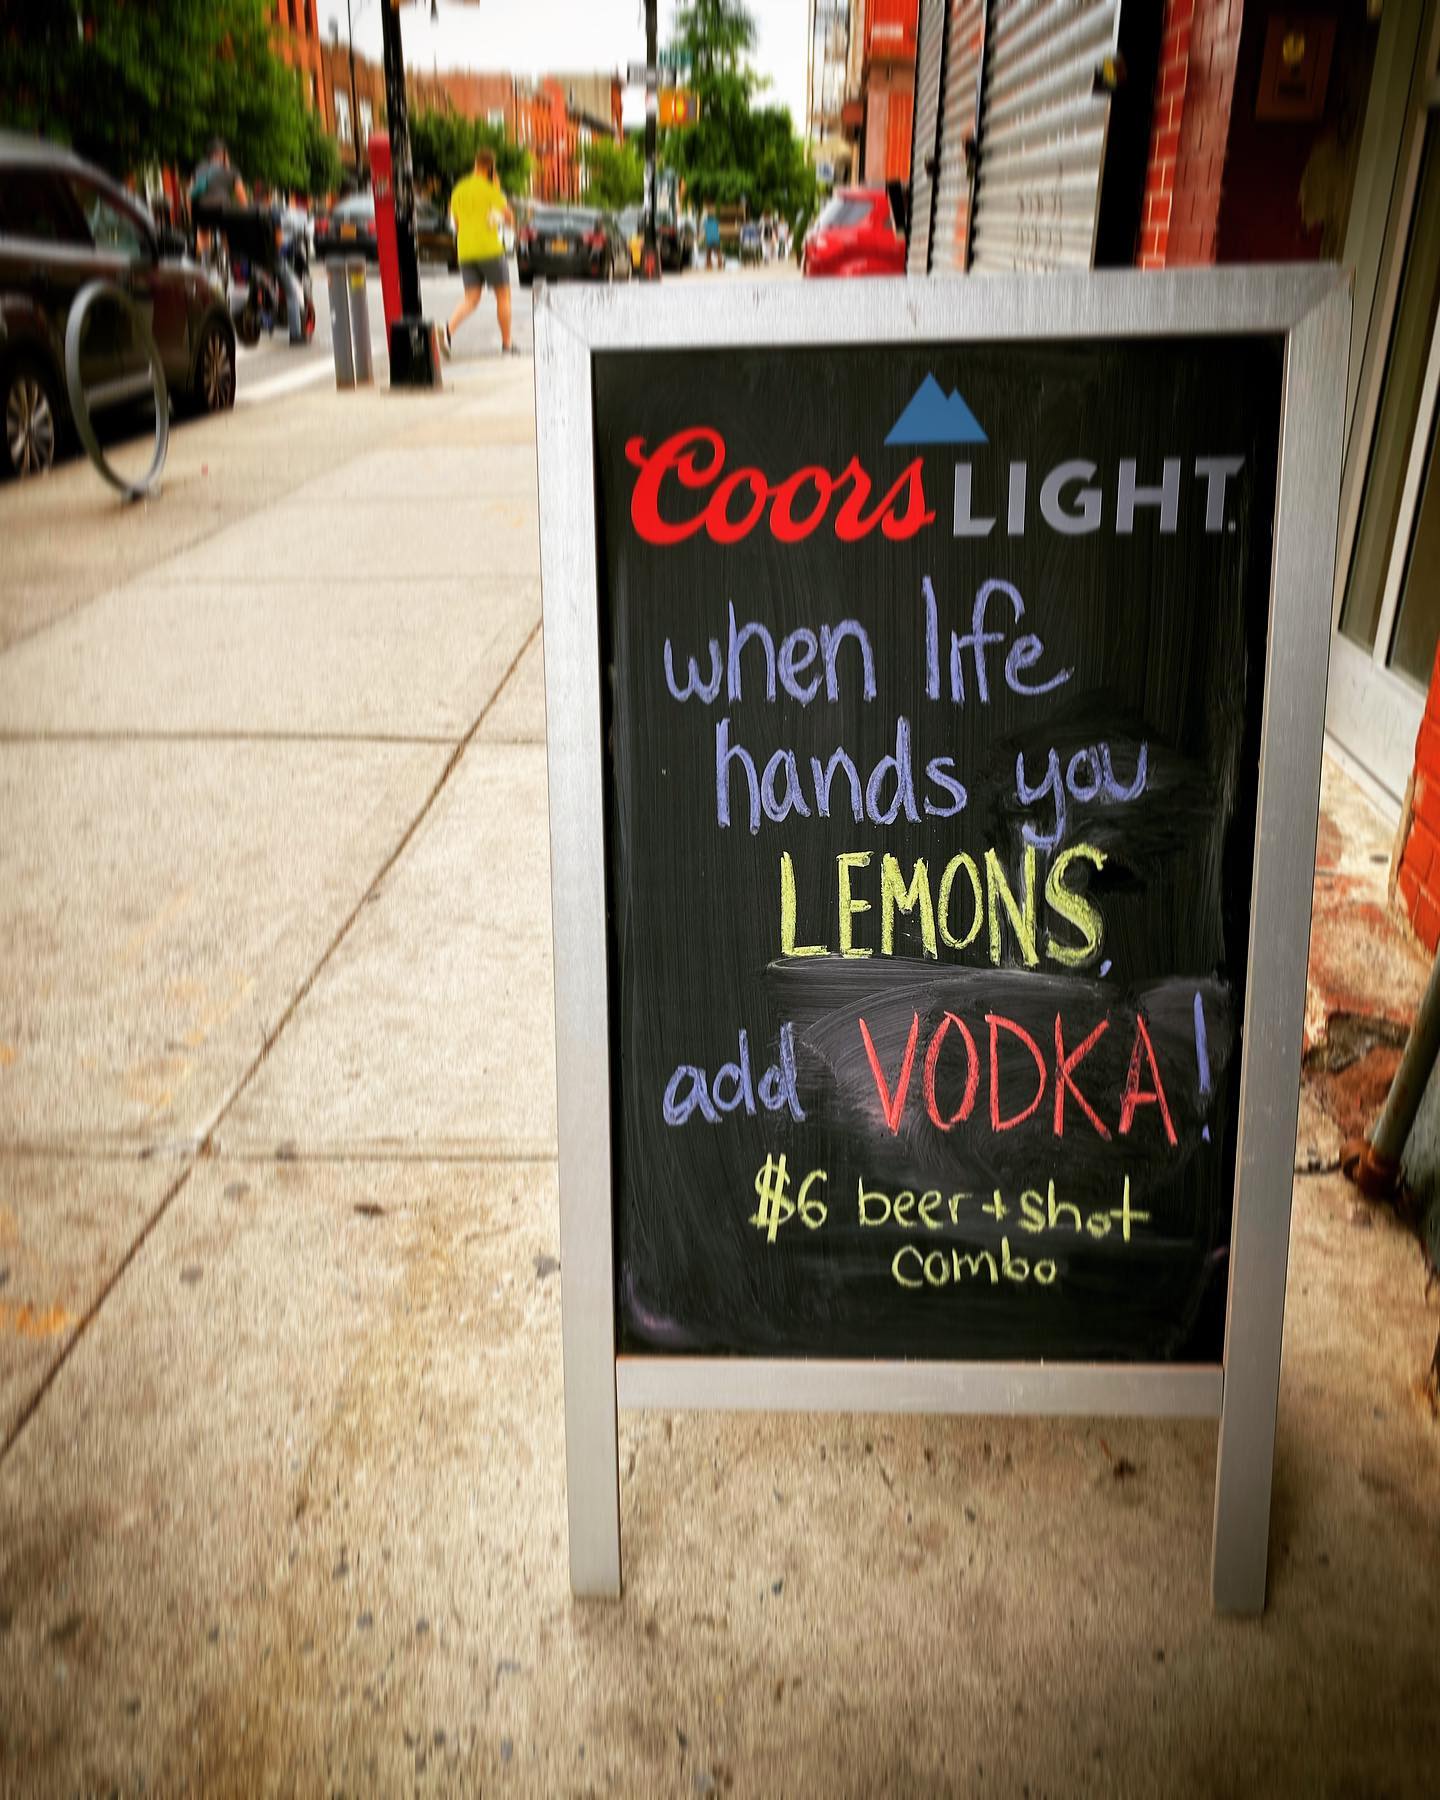 Coors LIGHT
when life
hands you
LEMONS,
add VODKA!
$6 beer + shot
combo